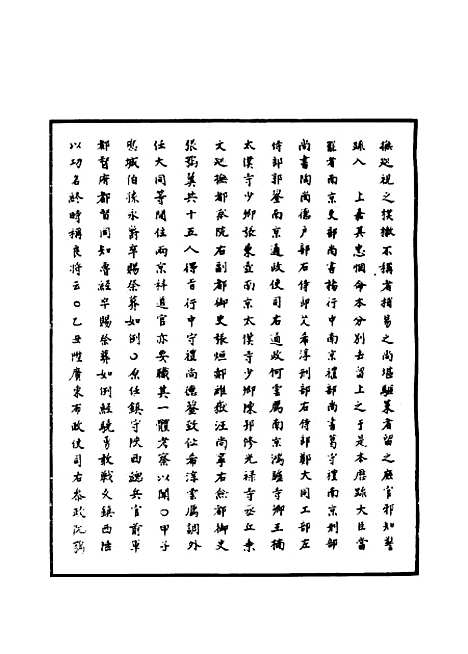 撫巡視之摸撤不稱者稍易之尚堪驅策者留之庶官邪知警
疏入　上嘉其忠悃命本分別去留上之于是本歷疏大臣當
罷者南京吏部尚書楊行中南京禮部尚書葛守禮南京刑部
尚書陶尚德戶部右侍郎艾希淳刑部右侍郎鄭大同工部左
侍郎郭鋆南京通政使司右通政何雲鴈南京鴻臚寺卿王楠
太僕寺少卿張東壺南京太僕寺少卿陳邦修光祿寺丞丘秉
文巡撫都察院右副都御史張烜都雒嶽汪尚寧右僉都御史
張鶚翼共十五人得旨行中守禮尚德鋆致仕希淳雲鴈調外
任大同等閒住兩京科道官亦要職其一體考察以聞〇甲子
惠城伯孫永爵卒賜祭葬如例〇原任鎮守陝西總兵官前軍
都督府都督同知魯經卒賜祭葬如例經驍勇敢戰久鎮西陲
以功名終時稱良將云〇乙丑陞廣東布政使司右參政阮鶚